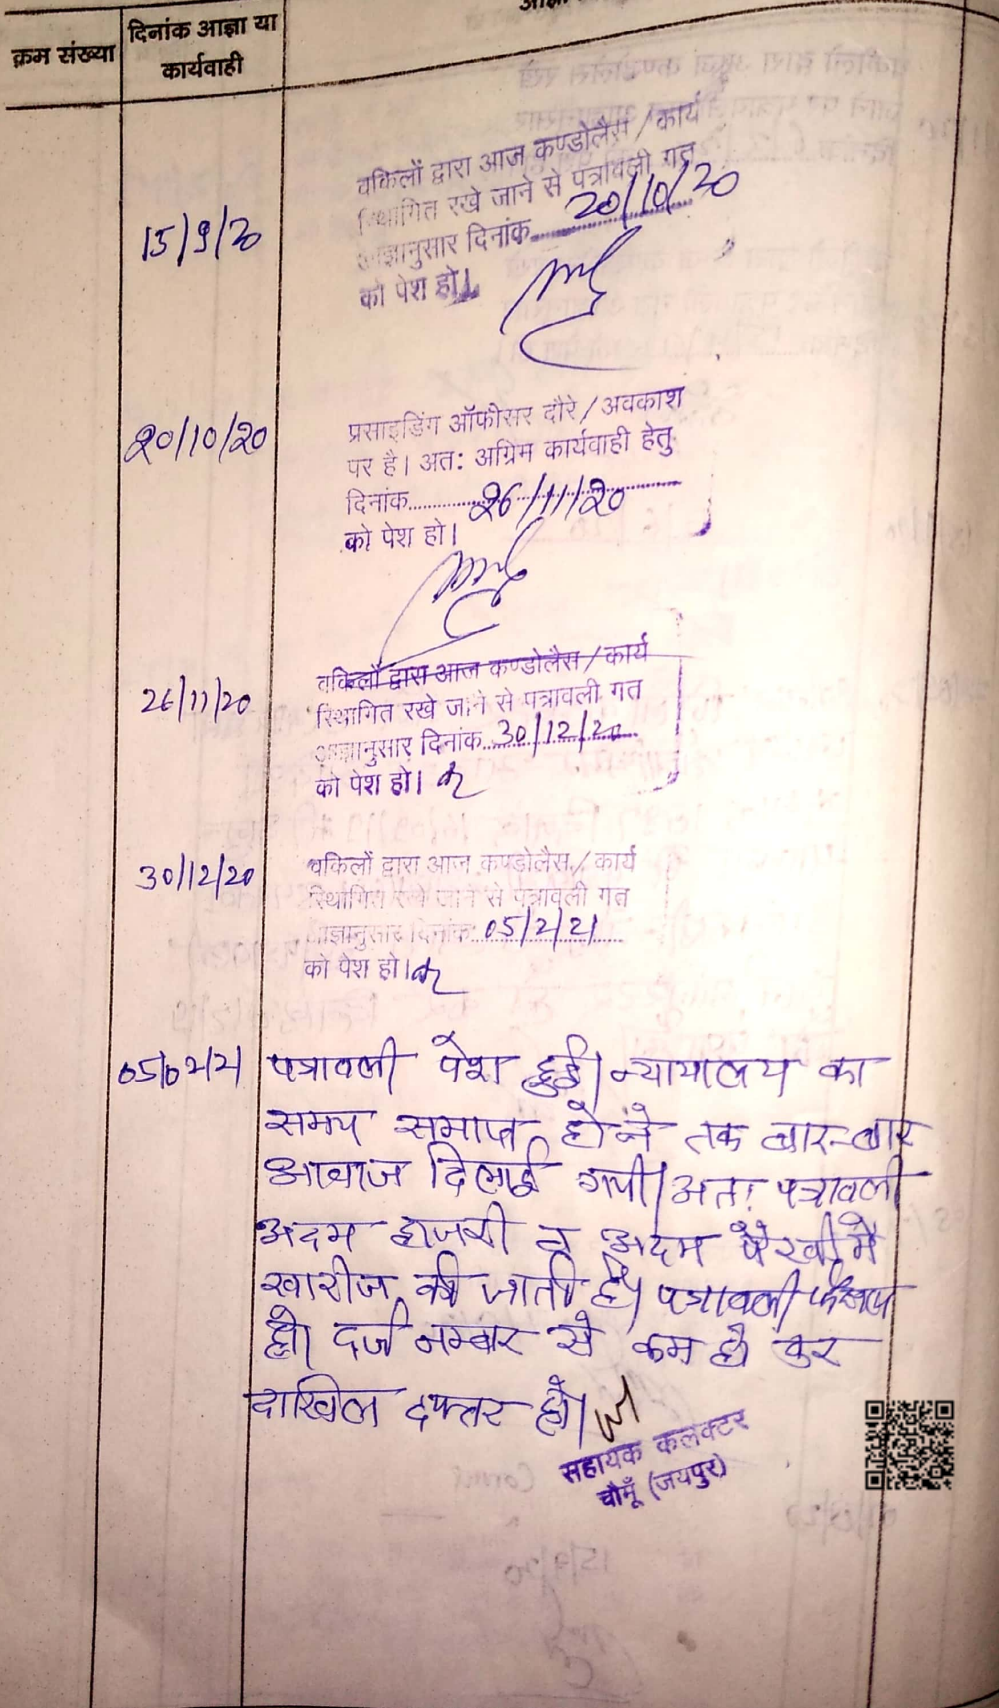 क्रम संख्या
दिनांक आज्ञा या
कार्यवाही
15/9/20
वकिलों द्वारा आज कण्डोलैस/कार्य
स्थागित रखे जाने से पत्रावली गत
आज्ञानुसार दिनांक 20/10/20
को पेश हो।
20/10/20
प्रसाइडिंग ऑफीसर दौरे/अवकाश
पर है। अतः अग्रिम कार्यवाही हेतु
दिनांक 26/11/20
को पेश हो।
26/11/20
वकिलों द्वारा आज कण्डोलैस/कार्य
स्थागित रखे जाने से पत्रावली गत
आज्ञानुसार दिनांक 30/12/20
को पेश हो।
30/12/20
वकिलों द्वारा आज कण्डोलैस/कार्य
स्थागित रखे जाने से पत्रावली गत
आज्ञानुसार दिनांक 05/2/21
को पेश हो।
05/02/21 पत्रावली पेश हुई। न्यायालय का
समय समाप्त होने तक बार-बार
आवाज दिलाई गयी। अतः पत्रावली
अदम हाजरी व अदम पैरवी में
खारीज की जाती है। पत्रावली फैसल
हो। दर्ज नम्बर से कम हो कर
दाखिल दफ्तर हो।
सहायक कलक्टर
चौमूँ (जयपुर)